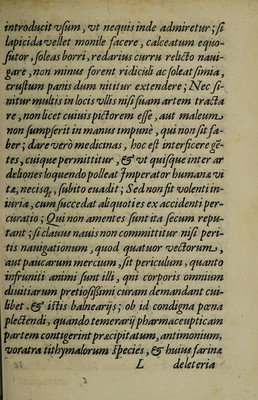 introducit vsum, vt nequis inde admiretur; si
lapicida vellet monile facere, calceatum equo-
sutor, soleas borri, redarius curru relicto naui-
gare, non minus forent ridiculi ac soleat simia,
crustum panis dum nititur extendere; Nec si-
nitur multis in locis vllis nisi suam artem tracta
re, non licet cuiuis pictorem esse, aut maleum
non sumpserit in manus impunè, qui non sit fa-
ber; dare verò medicinas, hoc est interficere gẽ-
tes, cuique permittitur, & vt quisque inter ar
deliones loquendo polleat Imperator humanæ vi
tæ, necisq, subito euadit; Sed non sit volenti in-
iuria, cum succedat aliquoties ex accidenti per-
curatio; Qui non amentes sunt ita secum repu-
tant; si clauus nauis non committitur nisi peri-
tis nauigationum, quod quatuor vectorum,
aut paucarum mercium, sit periculum, quanto
infruniti animi sunt illi, qui corporis omnium
diuitiarum pretiosissimi curam demandant cui-
libet. & istis balnearijs; ob id condigna pœna
plectendi, quando temerarij pharmaceupticam
partem contigerint præcipitatum, antimonium,
voratra tithymalorum species, & huius farinæ
L deleteria